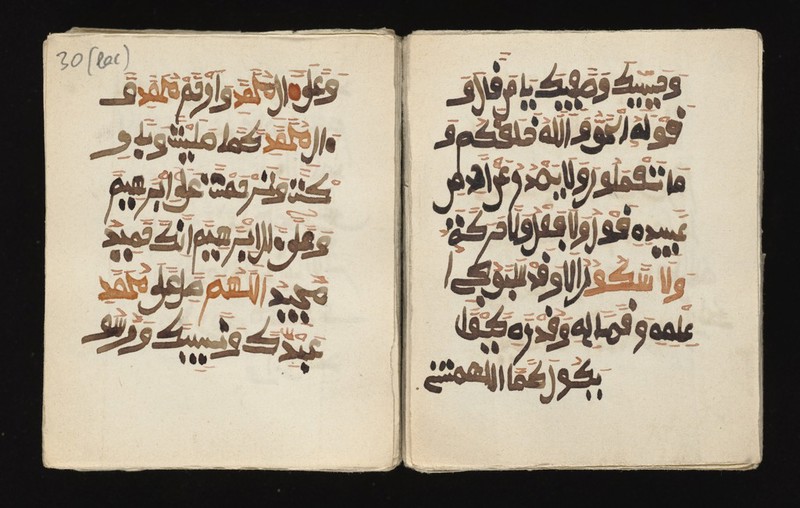 وحبيبك وصفيك يا من قال و
قوله الحق والله خلقكم و
ما تعملون ولا يصدر عن احد من
عبيده قول ولا فعل ولا حركة
ولا سكون الا وقد سبق في
علمه وقضايه وقدره كيف
يكون كما الهمتني
30 (bac)
وعلى ال محمد وارحم محمد و
ال محمد كما صليت وبار
كت وترحمت على ابرهيم
وعلى ال ابرهيم انك حميد
مجيد اللهم صل على محمد
عبدك ونبيك ورسو